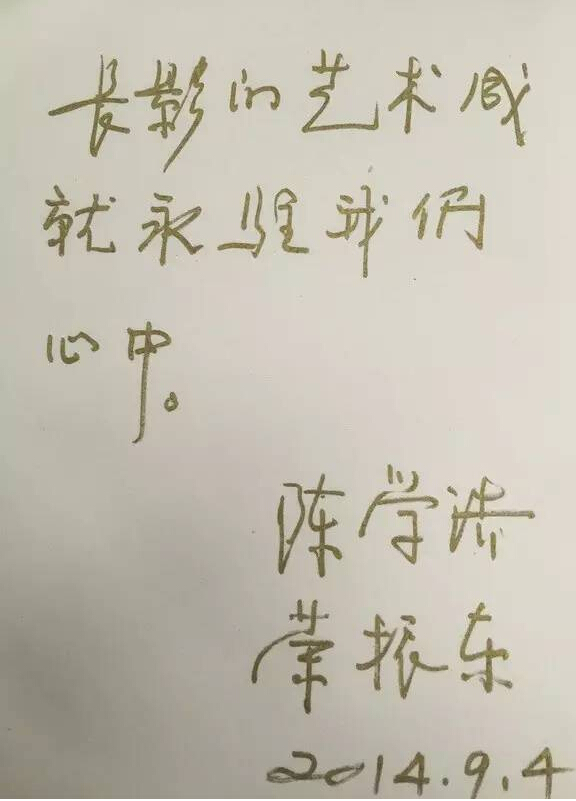 长影的艺术成
就永驻我们
心中。
陈学洁
荣振东
2014.9.4